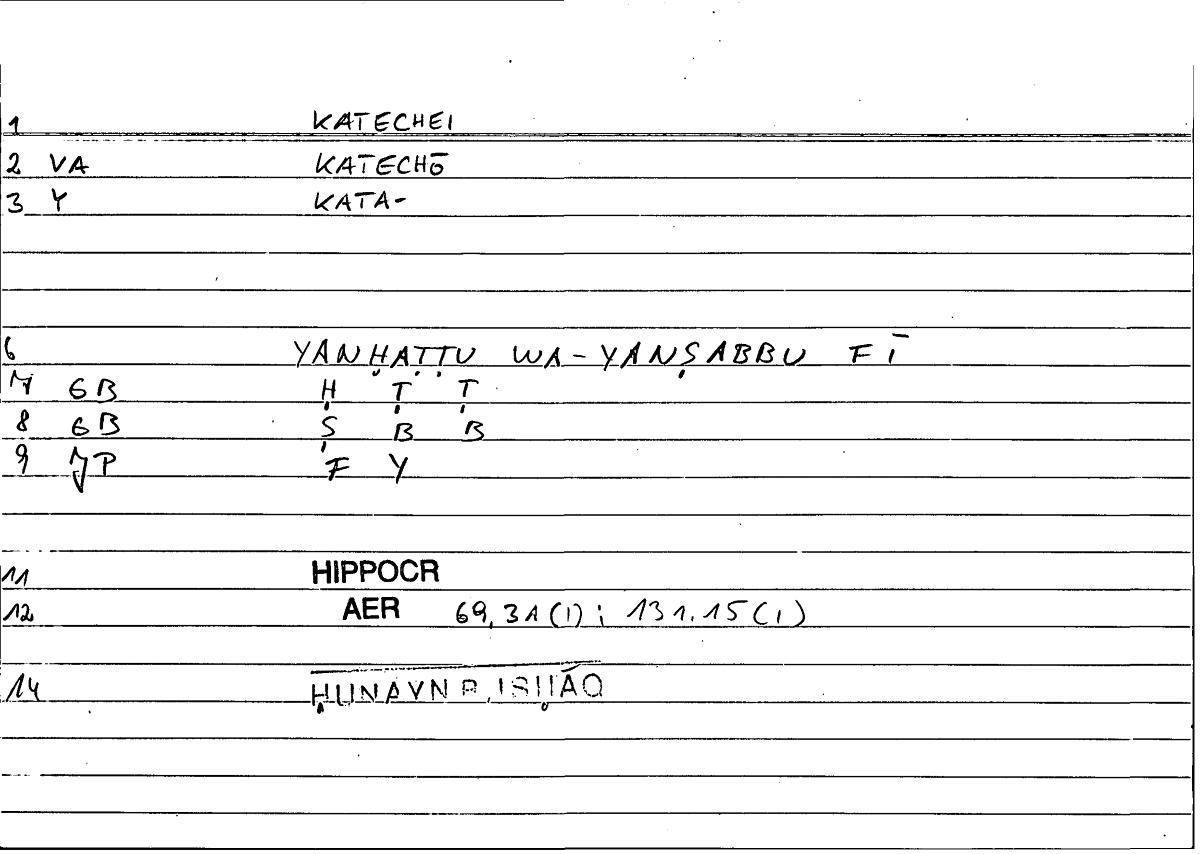 1 KATECHEI
2 VA KATECHŌ
3 Y KATA-
6 YANḤAṬṬU WA-YANṢABBU FĪ
7 GB Ḥ Ṭ Ṭ
8 GB Ṣ B B
9 JP F Y
11 HIPPOCR
12 AER 69,31(1); 131.15(1)
14 ḤUNAYN B. ISḤĀQ